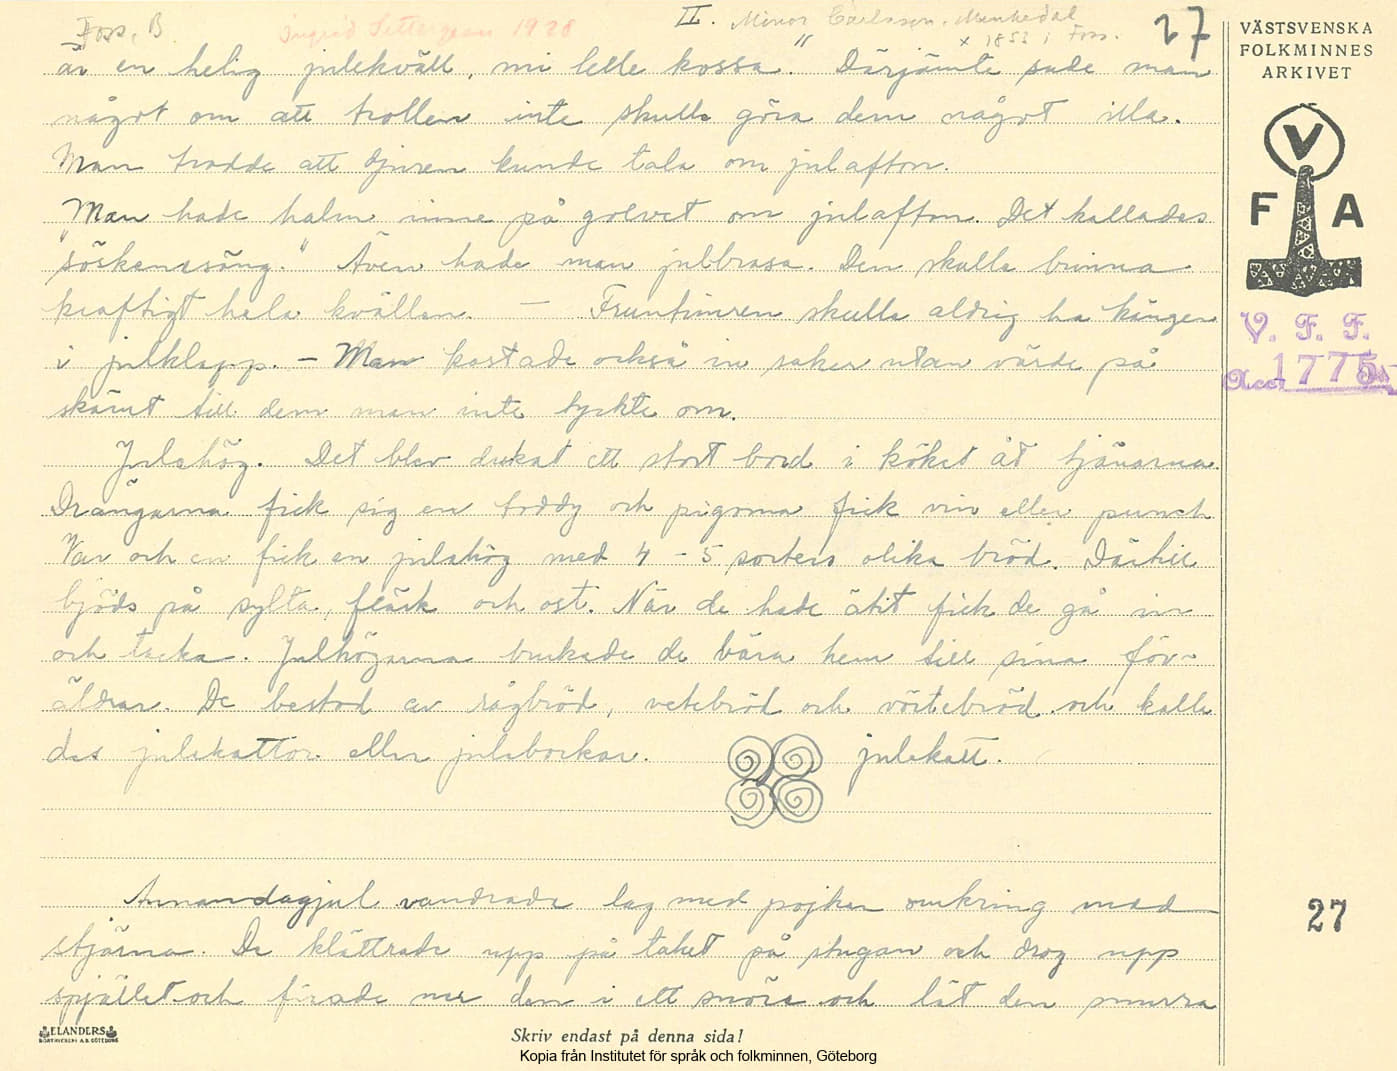 Foss, B.
Ingrid Settergren 1928
II. Minor Carlsson, Munkedal
x 1853 i Foss.
27
är en helig julekväll, mi lelle kossa." Därjämte sade man
något om att trollen inte skulle göra dem något illa.
Man trodde att djuren kunde tala om julafton.
Man hade halm inne på golvet om julafton. Det kallades
"söskenssäng." Även hade man julbrasa. Den skulle brinna
kraftigt hela kvällen. — Fruntimren skulle aldrig ha kängor
i julklapp. — Man kastade också in saker utan värde på
skämt till dem man inte tyckte om.
Julahög. Det blev dukat ett stort bord i köket åt tjänarna.
Drängarna fick sig en toddy och pigorna fick vin eller punch
Var och en fick en julahög med 4 - 5 sorters olika bröd. Därtill
bjöds på sylta, fläsk och ost. När de hade ätit fick de gå in
och tacka. Julhögarna brukade de bära hem till sina för-
äldrar. De bestod av rågbröd, vetebröd och vörtebröd och kalla
des julekattor eller julabockar. julekatt.
Annandagjul vandrade lag med pojkar omkring med
stjärna. De klättrade upp på taket på stugan och drog upp
spjället och firade ner den i ett snöre och lät den snurra
VÄSTSVENSKA
FOLKMINNES
ARKIVET
V
F A
V. F. F.
Acc. 1775
27
ELANDERS
BOKTRYCKERI A.B. GÖTEBORG
Skriv endast på denna sida!
Kopia från Institutet för språk och folkminnen, Göteborg